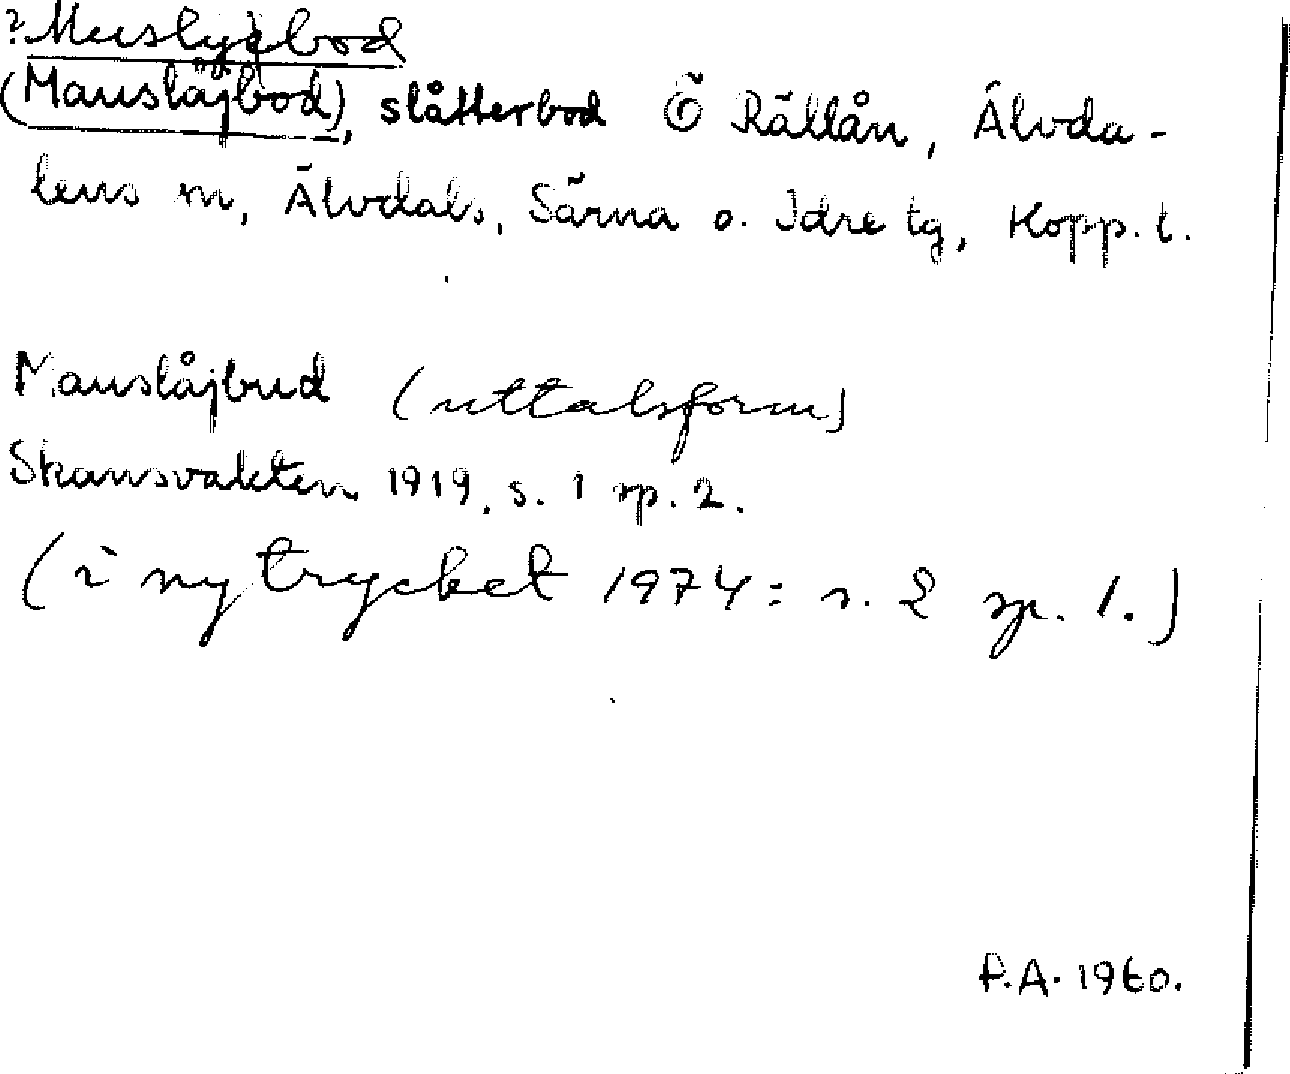 ?Muslyjbod
(Mauslåjbod), slåtterbod Ö Rällån, Älvda-
lens sn, Älvdals, Särna o. Idre tg, Kopp. l.
Mauslåjbud (uttalsform)
Skansvakten 1919, s. 1 sp. 2.
(i nytrycket 1974: s. 2 sp. 1.)
P.A. 1960.